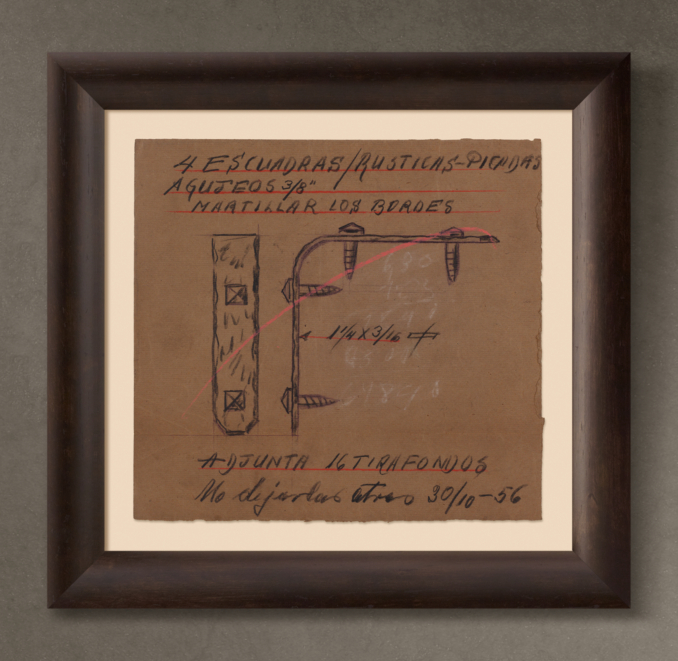 4 ESCUADRAS/RUSTICAS-PICADAS
AGUJEOS 3/8"
MARTILLAR LOS BORDES
1 1/4 X 3/16
ADJUNTA 16 TIRAFONDOS
No dejarlas atras 30/10-56